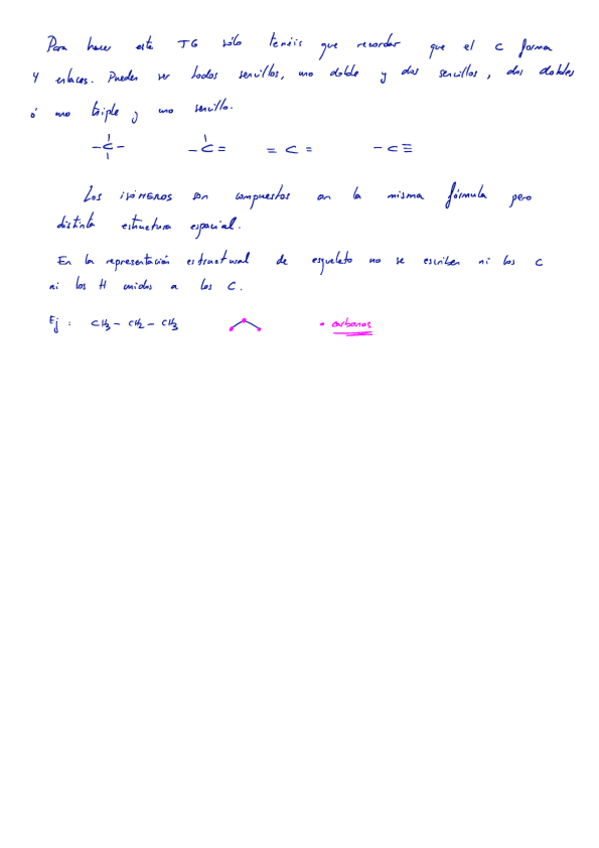 Para hacer este TG sólo tenéis que recordar que el C forma
4 enlaces. Pueden ser todos sencillos, uno doble y dos sencillos, dos dobles
ó uno triple y uno sencillo.
-C- -C= =C= -C≡
Los ISÓMEROS son compuestos con la misma fórmula pero
distinta estructura espacial.
En la representación estructural de esqueleto no se escriben ni los C
ni los H unidos a los C.
Ej: CH3-CH2-CH3 • carbonos